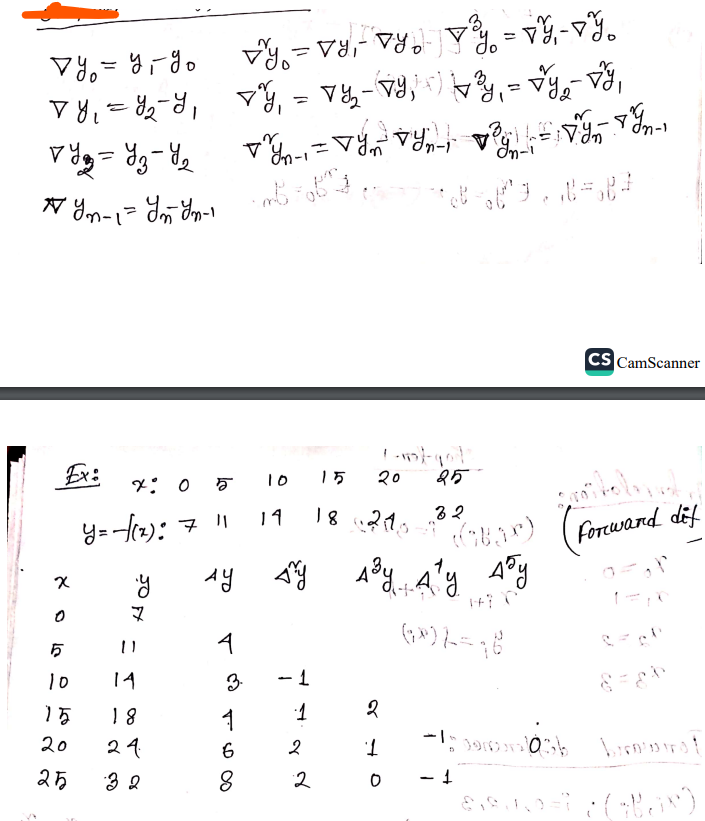 ∇y₀ = y₁-y₀ ∇²y₀ = ∇y₁ - ∇y₀ ∇³y₀ = ∇²y₁ - ∇²y₀
∇y₁ = y₂-y₁ ∇²y₁ = ∇y₂ - ∇y₁ ∇³y₁ = ∇²y₂ - ∇²y₁
∇y₂ = y₃-y₂ ∇²yₙ₋₁ = ∇yₙ - ∇yₙ₋₁ ∇³yₙ₋₁ = ∇²yₙ - ∇²yₙ₋₁
∇yₙ₋₁ = yₙ-yₙ₋₁
CS CamScanner
Ex: x: 0 5 10 15 20 25
y=f(x): 7 11 14 18 24 32
(Forward dif
x y Δy Δ²y Δ³y Δ⁴y Δ⁵y
0 7
5 11 4
10 14 3 -1
15 18 4 1 2
20 24 6 2 1 -1
25 32 8 2 0 -1